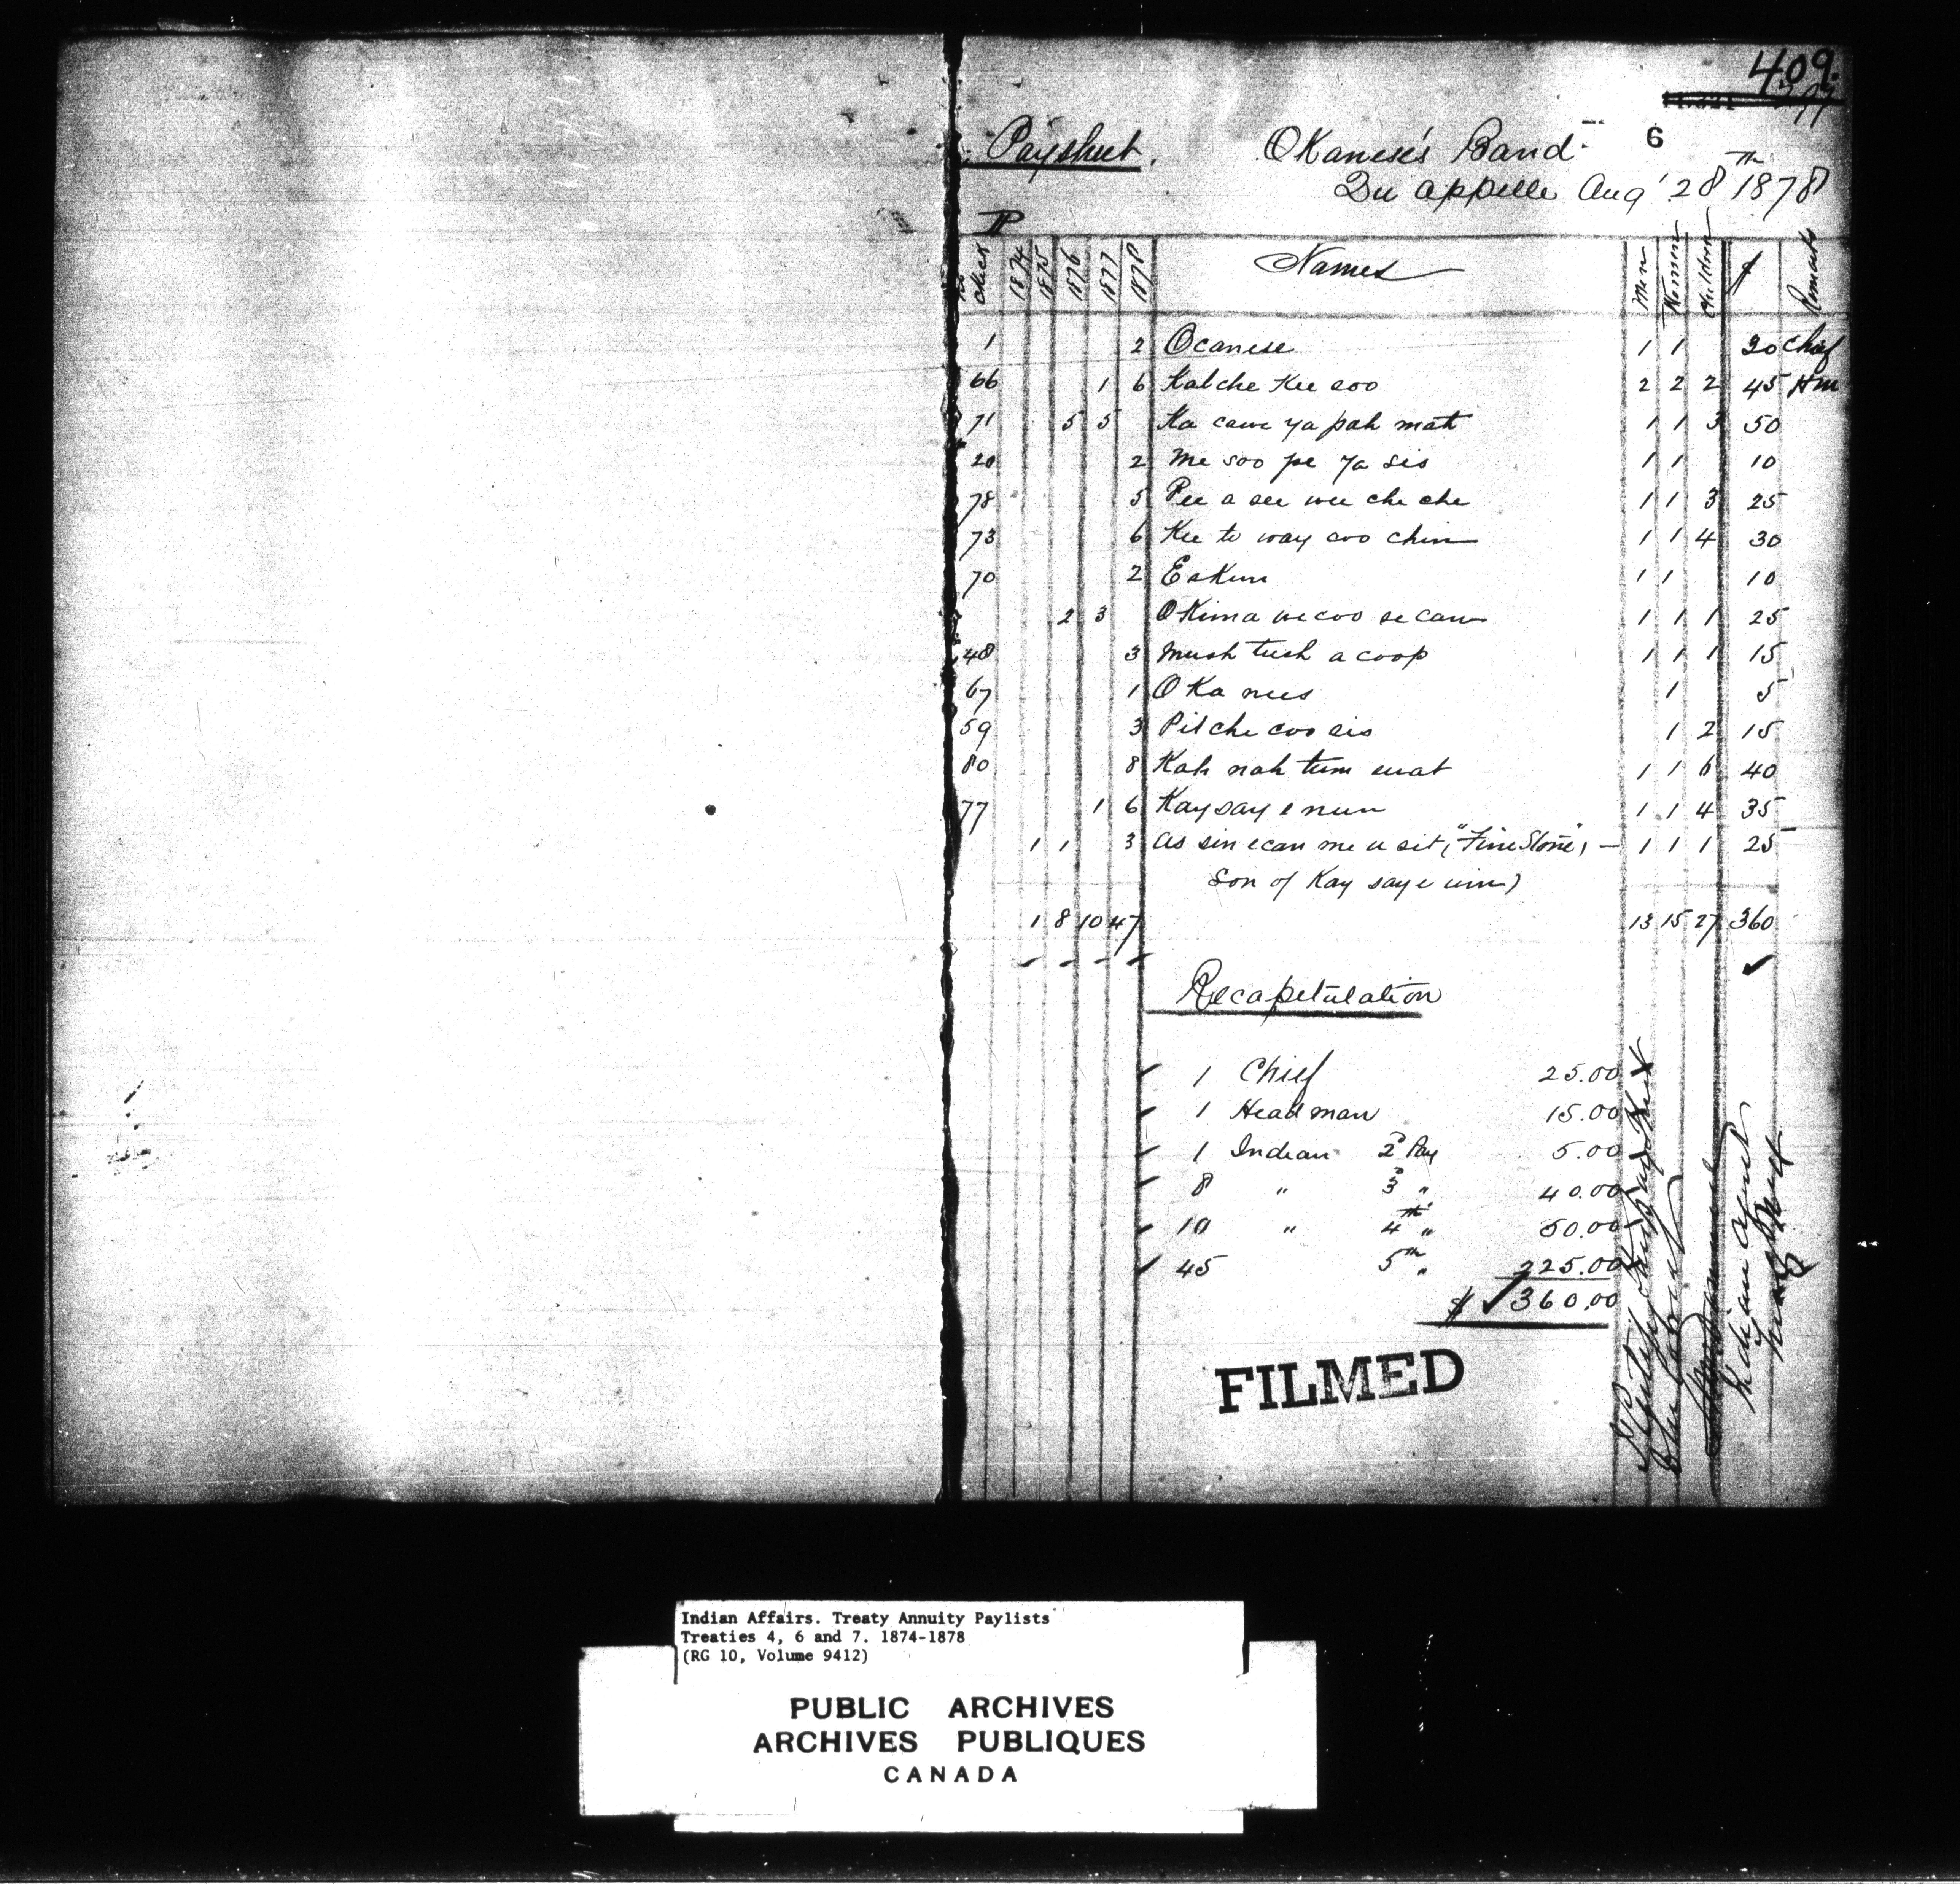 409.
Paysheet. OKanese's Band. 6
Qu appelle Aug' 28th 1878
No check 1874 1875 1876 1877 1878 Names Men Women Children $ Remarks
1 2 Ocanese 1 1 30 Chief
66 1 6 Katche Kee soo 2 2 2 45 Hm
71 5 5 Ka cawe ya pah mat 1 1 3 50
20 2 Me soo pe ya sis 1 1 10
78 5 Pee a see wee che che 1 1 3 25
73 6 Kee te way coo chin 1 1 4 30
70 2 Eakun 1 1 10
2 3 OKima we coo se caw 1 1 1 25
48 3 Mush tush a coop 1 1 1 15
67 1 O Ka nees 1 5
59 3 Pitche coo sis 1 2 15
80 8 Kah nah tum wat 1 1 6 40
77 1 6 Kay say e nun 1 1 4 35
1 1 3 As sin e can me u sit ("Fine Stone", — 1 1 1 25
Son of Kay say e nin)
1 8 10 47 13 15 27 360
Recapetulation
1 Chief 25.00
1 Headman 15.00
1 Indian 2d Pay 5.00
8 " 3d " 40.00
10 " 4th " 50.00
45 5th " 225.00
$ 360.00
Indian Agent
FILMED
Indian Affairs. Treaty Annuity Paylists
Treaties 4, 6 and 7. 1874-1878
(RG 10, Volume 9412)
PUBLIC ARCHIVES
ARCHIVES PUBLIQUES
CANADA